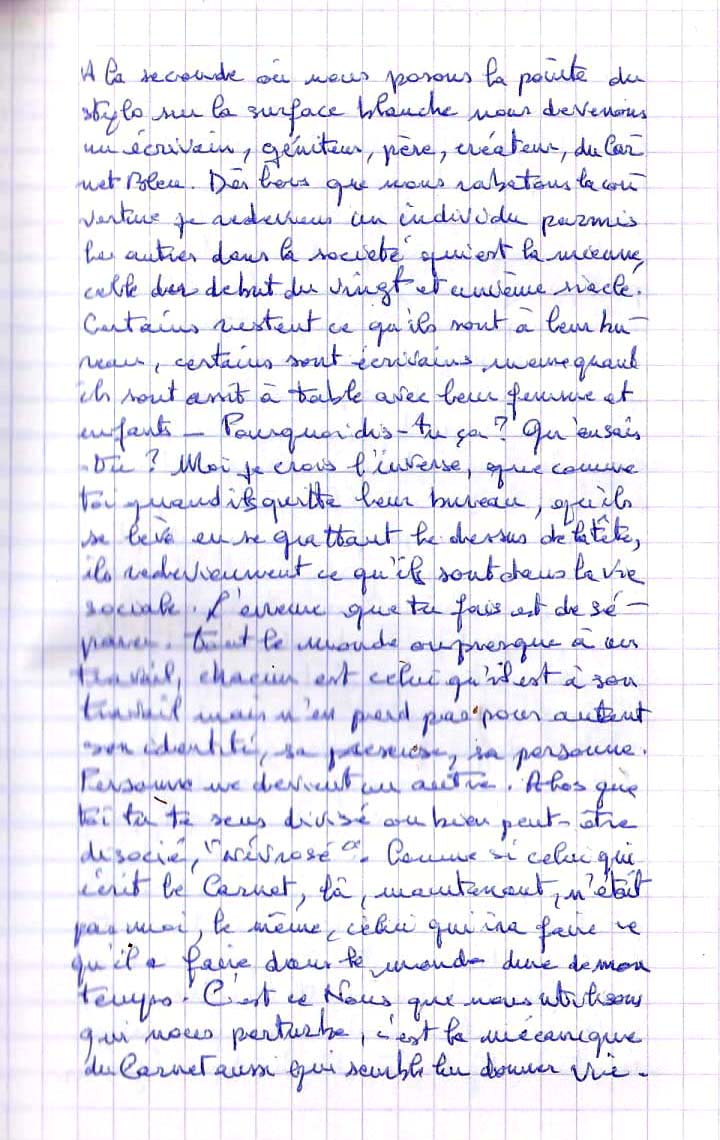 A la seconde où nous posons la pointe du
stylo sur la surface blanche nous devenons
un écrivain, géniteur, père, créateur, du Car
net Bleu. Dès lors que nous rabatons la cou
verture je redeviens un individu parmis
les autres dans la societé qui est la mienne,
celle des debut du vingt et unième siècle.
Certains restent ce qu'ils sont à leur bu-
reau, certains sont écrivains meme quand
ils sont assit à table avec leur femme et
enfants - Pourquoi dis-tu ça? Qu'en sais
-tu? Moi je crois l'inverse, que comme
toi quand ils quitte leur bureau, qu'ils
se lève en se grattant le dessus de la tête,
ils redeviennent ce qu'ils sont dans la vie
sociale. L'erreur que tu fais est de sé-
parer. Tout le monde ou presque à un
travail, chacun est celui qu'il est à son
travail mais n'en perd pas pour autant
son identité, sa présence, sa personne.
Personne ne devient un autre. Alors que
toi tu te sens divisé ou bien peut-être
disocié, "névrosé". Comme si celui qui
écrit le Carnet, là, maintenant, n'était
pas moi, le même, celui qui ira faire ce
qu'il a faire dans le monde de mon
temps. C'est ce Nous que nous utilisons
qui nous perturbe, c'est la mécanique
du Carnet aussi qui semble lui donner vie.